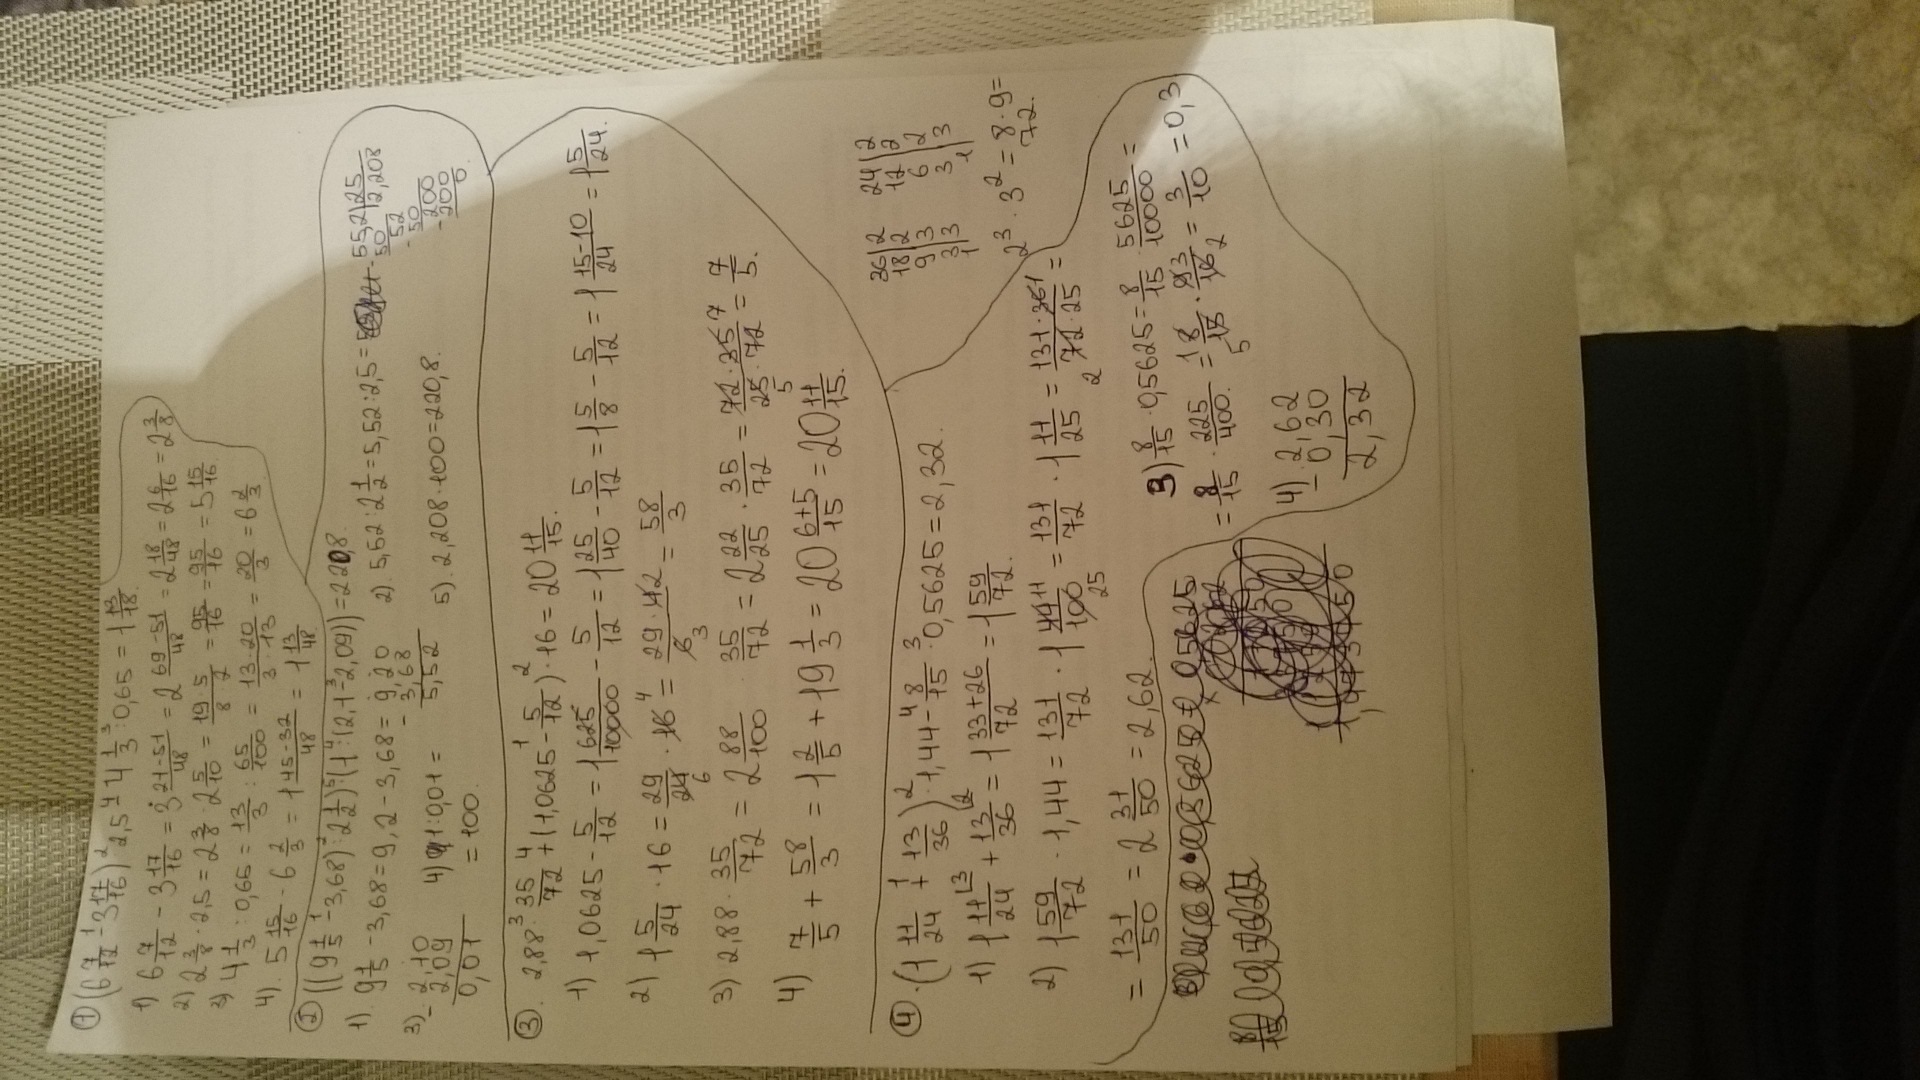 ① (6 7/12 - 3 17/16) · 2,5 + 4 1/3 : 0,65 = 1 13/18.
1) 6 7/12 - 3 17/16 = 3 21-51/48 = 2 69-51/48 = 2 18/48 = 2 6/16 = 2 3/8
2) 2 3/8 · 2,5 = 2 3/8 · 2 5/10 = 19/8 · 5/2 = 95/16 = 95/16 = 5 15/16
3) 4 1/3 : 0,65 = 13/3 : 65/100 = 13·20/3·13 = 20/3 = 6 2/3.
4) 5 15/16 - 6 2/3 = 1 45-32/48 = 1 13/48.
② ((9 1/5 - 3,68) : 2 1/2) : (1 : (2,1 - 2,09)) = 220,8.
1) 9 1/5 - 3,68 = 9,2 - 3,68 = 9,20 - 3,68 = 5,52
2). 5,52 : 2 1/2 = 5,52 : 2,5 =
552 | 25
50 | 2,208
52
50
200
200
0
3) 2,10 - 2,09 = 0,01
4) 1 : 0,01 = = 100.
5). 2,208·100 = 220,8.
③. 2,88 · 35/72 + (1,0625 - 5/12) · 16 = 20 11/15.
1) 1,0625 - 5/12 = 1 625/10000 - 5/12 = 1 25/40 - 5/12 = 1 5/8 - 5/12 = 1 15-10/24 = 1 5/24.
2) 1 5/24 · 16 = 29/24 · 16 = 29·12/6 = 58/3
3) 2,88 · 35/72 = 2 88/100 · 35/72 = 2 22/25 · 35/72 = 72·35/25·72 = 7/5.
4) 7/5 + 58/3 = 1 2/5 + 19 1/3 = 20 6+5/15 = 20 11/15.
④. (1 11/24 + 13/36) · 1,44 - 8/15 · 0,5625 = 2,32.
36 | 2
18 | 2
9 | 3
3 | 3
1
24 | 2
12 | 2
6 | 2
3 | 3
1
2³ · 3² = 8·9 =
72.
1) 1 11/24 + 13/36 = 1 33+26/72 = 1 59/72.
2) 1 59/72 · 1,44 = 131/72 · 1 44/100 = 131/72 · 1 11/25 = 131·36/72·25 =
= 131/50 = 2 31/50 = 2,62.
3) 8/15 · 0,5625 = 8/15 · 5625/10000 =
= 8/15 · 225/400 = 8/15 · 9/16 = 3/10 = 0,3
4) 2,62
- 0,30
2,32